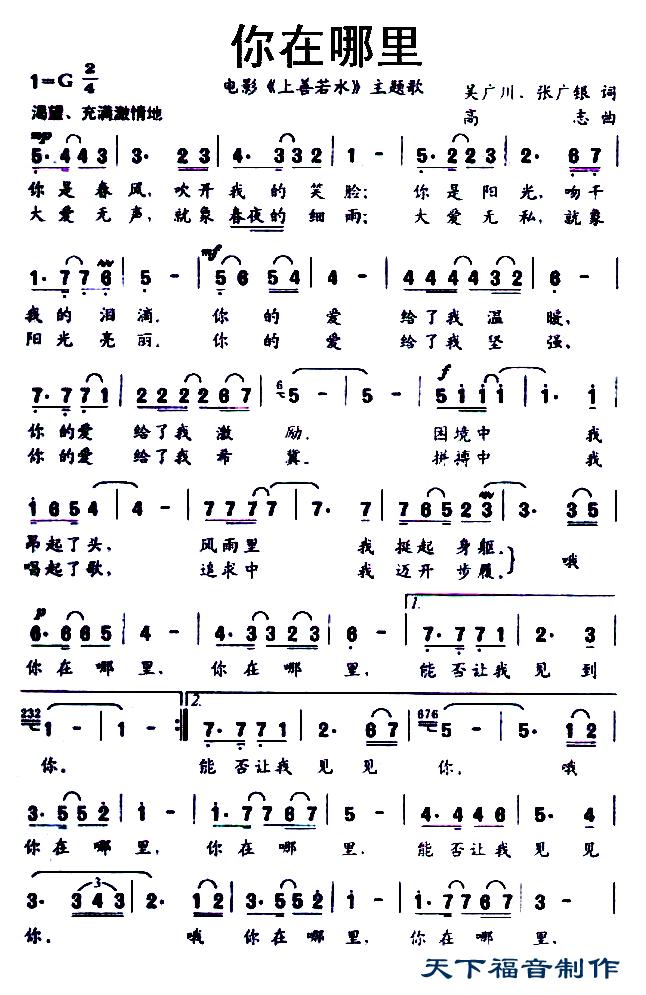 你在哪里
1=G 2/4
电影《上善若水》主题歌
吴广川、张广银 词
渴望、充满激情地
高 志 曲
mp
5· 4 4 3 | 3· 2 3 | 4· 3 3 2 | 1 - | 5· 2 2 3 | 2· 6 7 |
你是春风,吹开我的笑脸;你是阳光,吻干
大爱无声,就象春夜的细雨;大爱无私,就象
mf
1· 7 7 6 | 5 - | 5 6 5 4 | 4 - | 4 4 4 4 3 2 | 6 - |
我的泪滴.你的爱给了我温暖,
阳光亮丽.你的爱给了我坚强,
f
7· 7 7 1 | 2 2 2 2 6 7 | 6 5 - | 5 - | 5 1 1 1 | 1· 1 |
你的爱给了我激励.困境中我
你的爱给了我希冀.拼搏中我
1 6 5 4 | 4 - | 7 7 7 7 | 7· 7 | 7 6 5 2 3 | 3· 3 5 |
昂起了头,风雨里我挺起身躯.
唱起了歌,追求中我迈开步履.} 哦
p 1.
6· 6 6 5 | 4 - | 4· 3 3 2 3 | 6 - | 7· 7 7 1 | 2· 3 |
你在哪里,你在哪里,能否让我见到
2.
232 1 - | 1 - :| 7· 7 7 1 | 2· 6 7 | 676 5 - | 5· 1 2 |
你。能否让我见见你,哦
3· 5 5 2 | 1 - | 1· 7 7 6 7 | 5 - | 4· 4 4 6 | 5· 4 |
你在哪里,你在哪里.能否让我见见
3· 3 4 3 | 2· 1 2 | 3· 5 5 2 | 1 - | 1· 7 7 6 7 | 5 - |
你.哦你在哪里,你在哪里.
天下福音制作